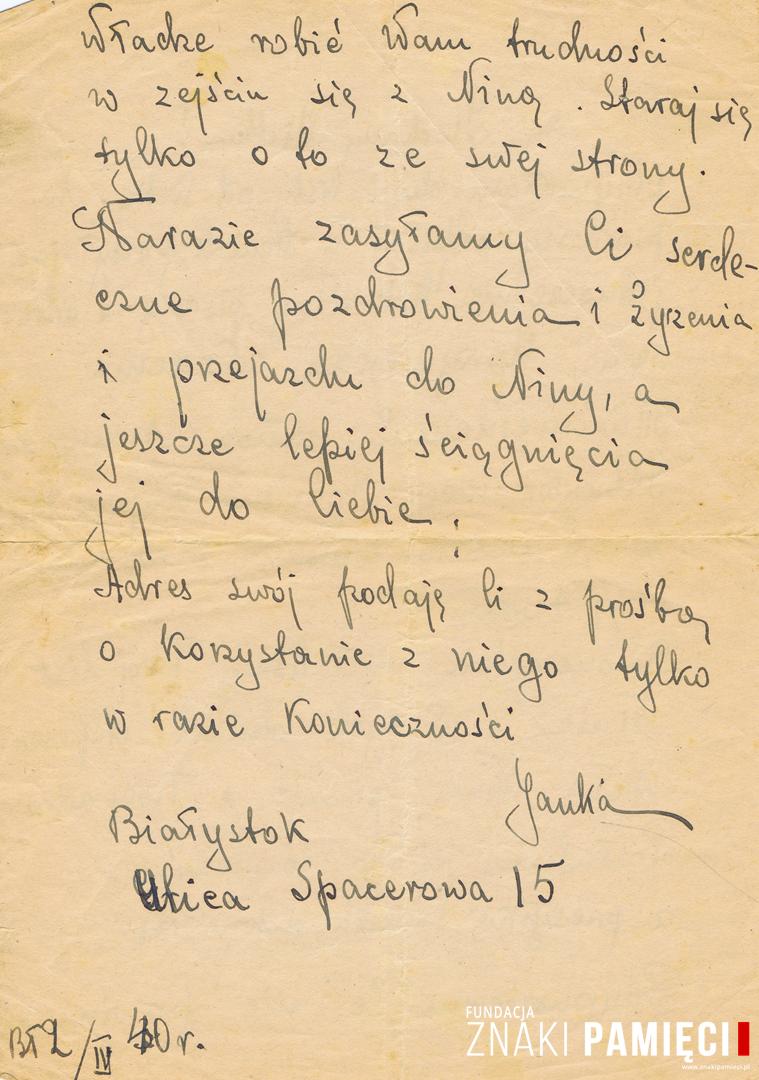 władze robić Wam trudności
w zejściu się z Niną. Staraj się
tylko o to ze swej strony.
Narazie zasyłamy Ci serde-
czne pozdrowienia i życzenia
i przejazdu do Niny, a
jeszcze lepiej ściągnięcia
jej do Ciebie.
Adres swój podaję Ci z prośbą
o korzystanie z niego tylko
w razie konieczności
Janka
Białystok
Ulica Spacerowa 15
Bł 2/IV 40 r.
FUNDACJA
ZNAKI PAMIĘCI
www.znakipamieci.pl